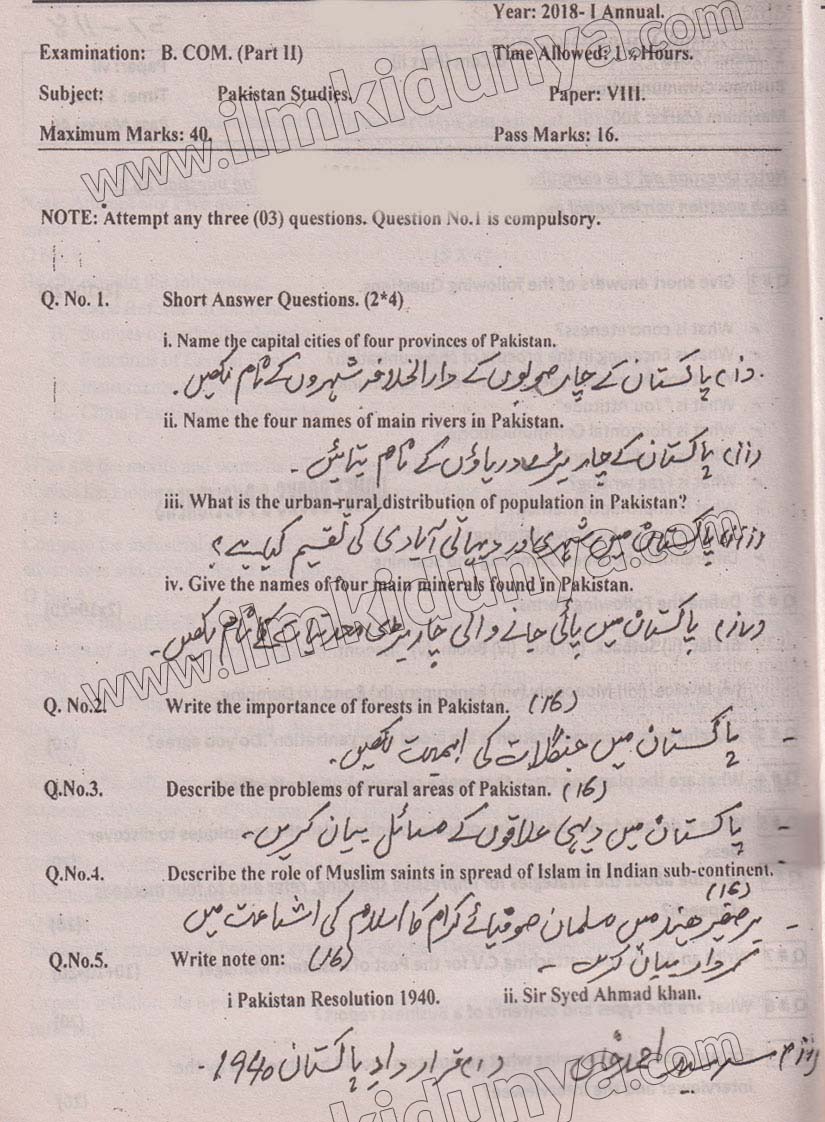 Year: 2018- I Annual.
Examination: B. COM. (Part II) Time Allowed: 1 ½ Hours.
Subject: Pakistan Studies. Paper: VIII.
Maximum Marks: 40. Pass Marks: 16.
NOTE: Attempt any three (03) questions. Question No.1 is compulsory.
Q. No. 1. Short Answer Questions. (2*4)
i. Name the capital cities of four provinces of Pakistan.
(i) پاکستان کے چار صوبوں کے دارالخلافہ شہروں کے نام لکھیں۔
ii. Name the four names of main rivers in Pakistan.
(ii) پاکستان کے چار بڑے دریاؤں کے نام بتائیں۔
iii. What is the urban-rural distribution of population in Pakistan?
(iii) پاکستان میں شہری اور دیہاتی آبادی کی تقسیم کیا ہے؟
iv. Give the names of four main minerals found in Pakistan.
(iv) پاکستان میں پائی جانے والی چار بڑی معدنیات کے نام لکھیں۔
Q. No.2. Write the importance of forests in Pakistan. (16)
پاکستان میں جنگلات کی اہمیت لکھیں۔
Q.No.3. Describe the problems of rural areas of Pakistan. (16)
پاکستان میں دیہی علاقوں کے مسائل بیان کریں۔
Q.No.4. Describe the role of Muslim saints in spread of Islam in Indian sub-continent.
(16)
برصغیر ہند میں مسلمان صوفیائے کرام کا اسلام کی اشاعت میں
کردار بیان کریں۔
Q.No.5. Write note on: (16)
i Pakistan Resolution 1940. ii. Sir Syed Ahmad khan.
(i) قرار داد پاکستان 1940۔ (ii) سر سید احمد خان
www.ilmkidunya.com
www.ilmkidunya.com
www.ilmkidunya.com